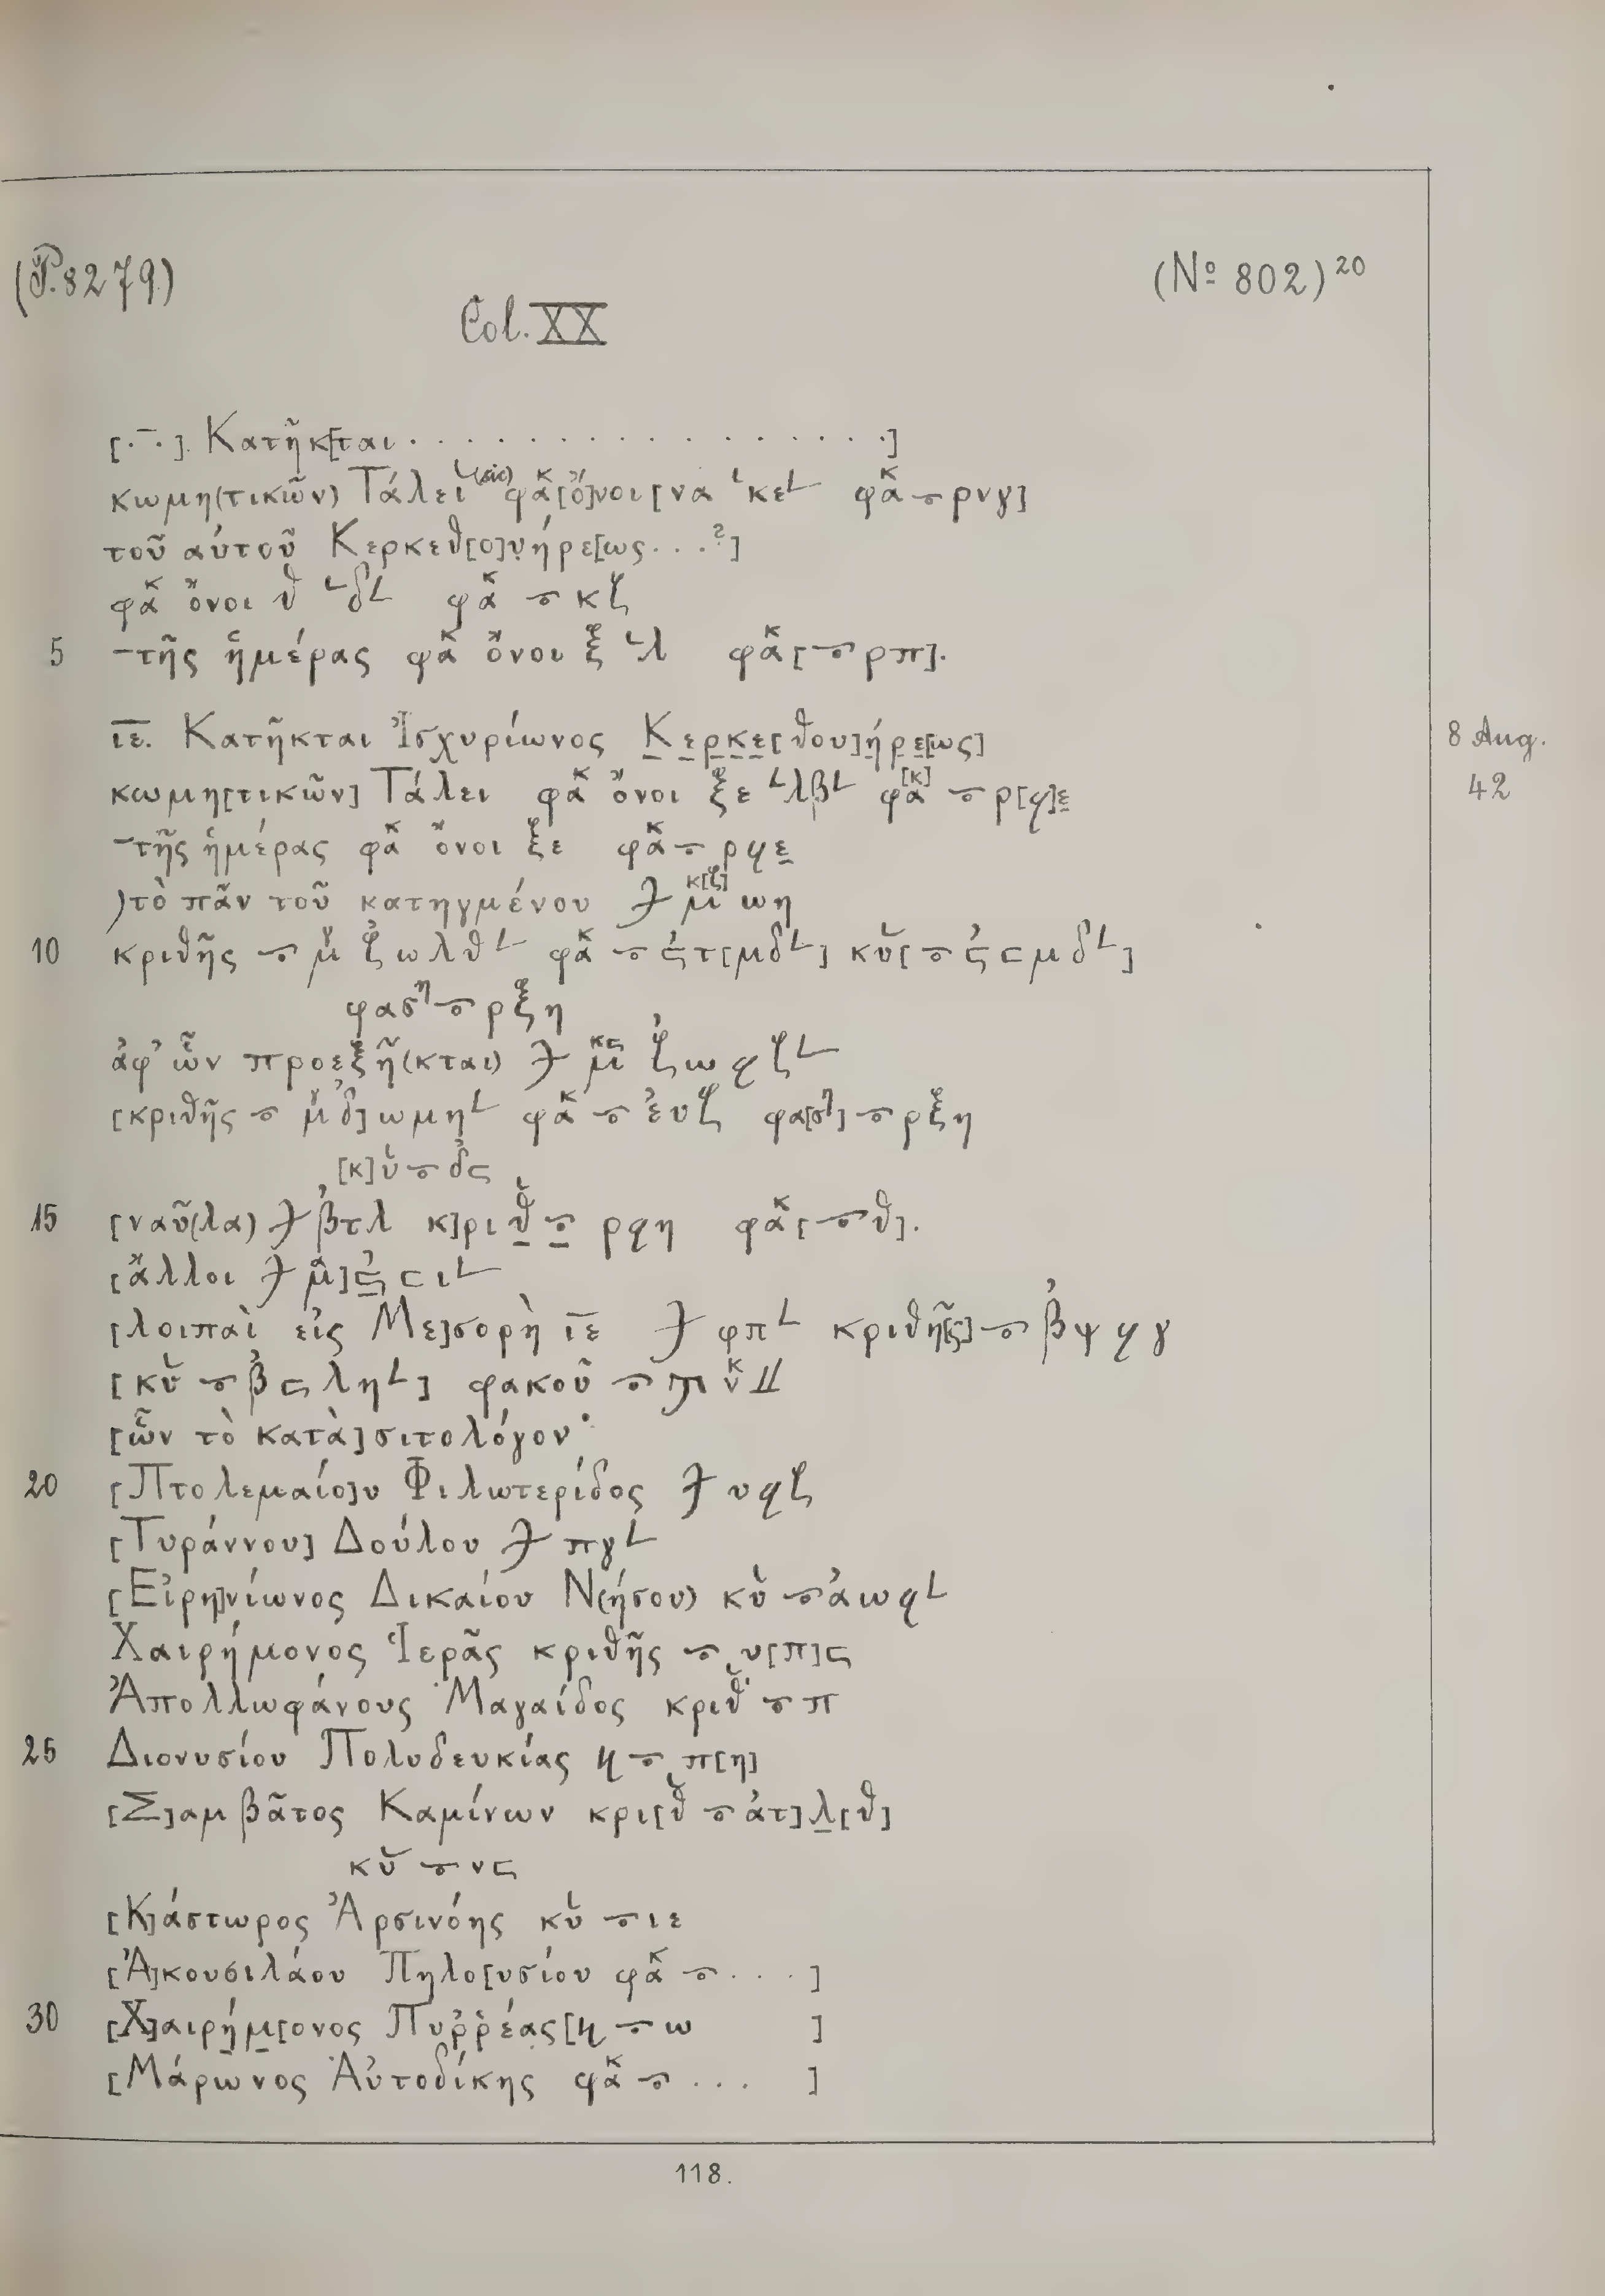 (P. 8279)
(Nº 802)²⁰
Col. XX
[.‾.]. Κατῆκ[ται . . . . . . . . . . . . . . . . .]
κωμη(τικῶν) Τάλει (sic) φακ [ὄ]νοι [να └κε└ φακ ⲻ ρνγ]
τοῦ αὐτοῦ Κερκεθ[ο]υ̣ήρε[ως . . . ?]
φακ ὄνοι θ └δ└ φακ ⲻ κζ
5 —τῆς ἡμέρας φακ ὄνοι ξ └λ φακ [ⲻ ρπ].
ι̅ε̅. Κατῆκται Ἰσχυρίωνος Κ̲ε̲ρ̲κ̲ε̲[θου]ή̲ρ̲ε̲[ως]
8 Aug.
κωμη[τικῶν] Τάλει φακ ὄνοι ξε └λβ└ φα[κ] ⲻ ρ[ϥ]ε̲
42
—τῆς ἡμέρας φακ ὄνοι ξε φακ ⲻ ρϥε̲
)τὸ πᾶν τοῦ κατηγμένου μ κ[ζ] ωη
10 κριθῆς ⲻ μγ ζωλθ└ φακ ⲻ ςτ[μδ└] κυ [ⲻ ς⊂μδ└]
φαση ⲻ ρξη
ἀφ’ ὧν προεξῆ(κται) μ κς ζωϥζ└
[κριθῆς ⲻ μγ δ]ωμη└ φακ ⲻ ευζ φα[ση] ⲻ ρξη
[κ]υ ⲻ δς
15 [ναῦ(λα) βτλ κ]ριθ̲ ⲻ ρϥη φακ [ⲻ θ].
[ἄλλοι μα] ς̲⊂ι└
[λοιπαὶ εἰς Με]σορὴ ι̅ε̅ φπ└ κριθῆ[ς] ⲻ βψϥγ
[κυ ⲻ β⊂λη└] φακοῦ ⲻ ϡ νκ
[ὧν τὸ κατὰ] σιτολόγον·
20 [Πτολεμαίο]υ Φιλωτερίδος υϥζ
[Τυράννου] Δούλου πγ└
[Εἰρη]νίωνος Δικαίου Ν(ήσου) κυ ⲻ αωϥ└
Χαιρήμονος Ἱερᾶς κριθῆς ⲻ υ[π]ς
Ἀπολλωφάνους Μαγαίδος κριθ ⲻ π
25 Διονυσίου Πολυδευκίας ϥ ⲻ π[η]
[Σ]αμβᾶτος Καμίνων κρι[θ ⲻ ατ]λ̲[θ]
κυ ⲻ νς
[Κ]άστωρος Ἀρσινόης κυ ⲻ ιε
[Ἀ]κουσιλάου Πηλο[υσίου φακ ⲻ . . . ]
30 [Χ]αιρή̲μ̲[ονος Πυῤῥέας [ϥ ⲻ ω ]
[Μάρωνος Αὐτοδίκης φακ ⲻ . . . ]
118.